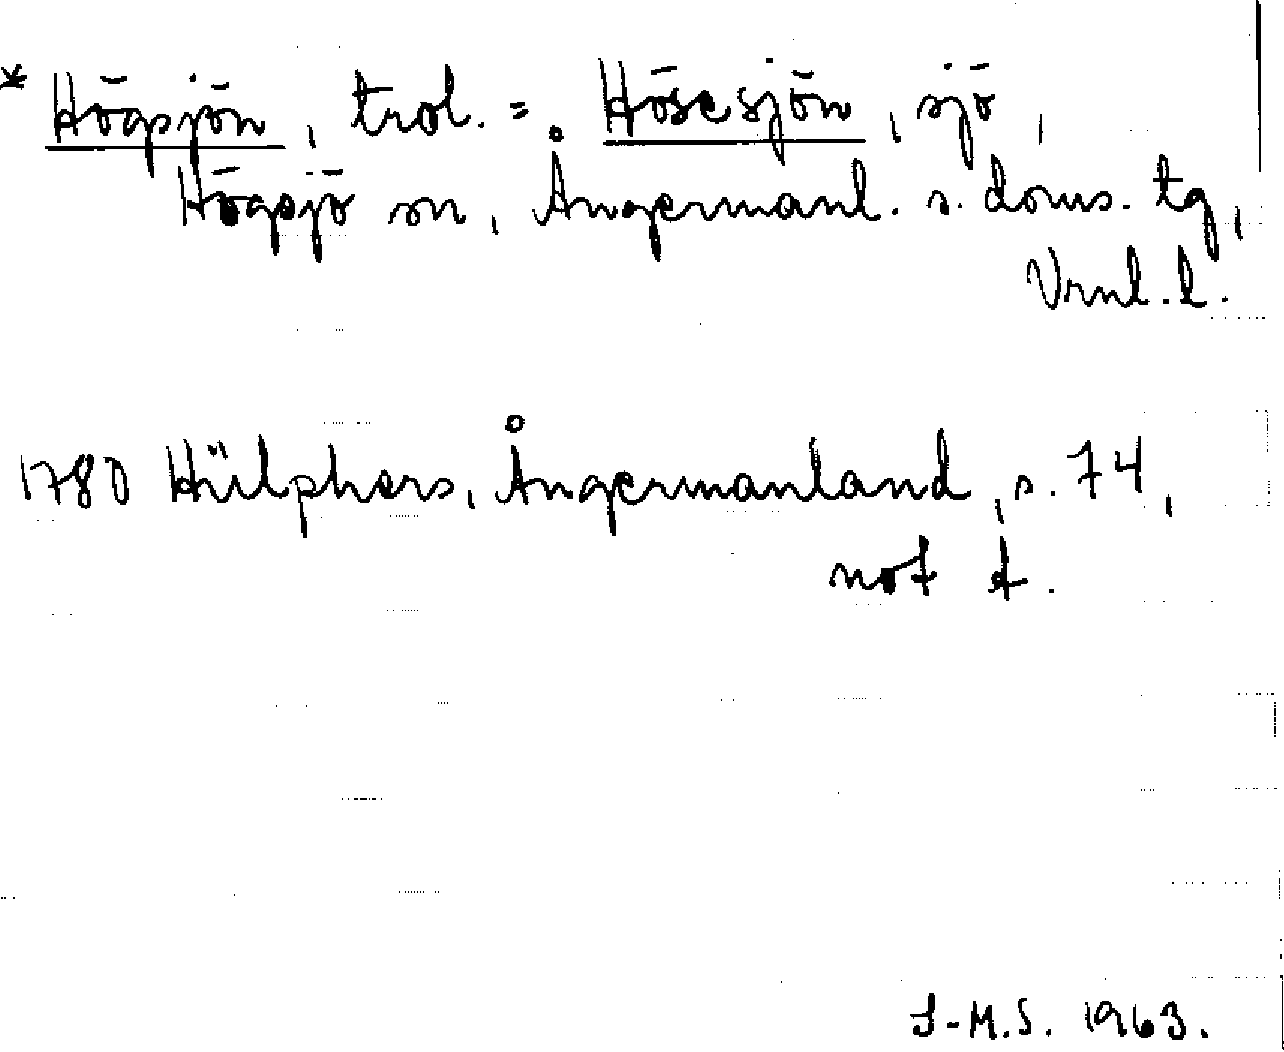 * Högsjön, trol. = Hösesjön, sjö,
Högsjö sn, Ångermanl. s. doms. tg,
Vrnl. l.
1780 Hülphers, Ångermanland, s. 74,
not t.
J-M.S. 1963.